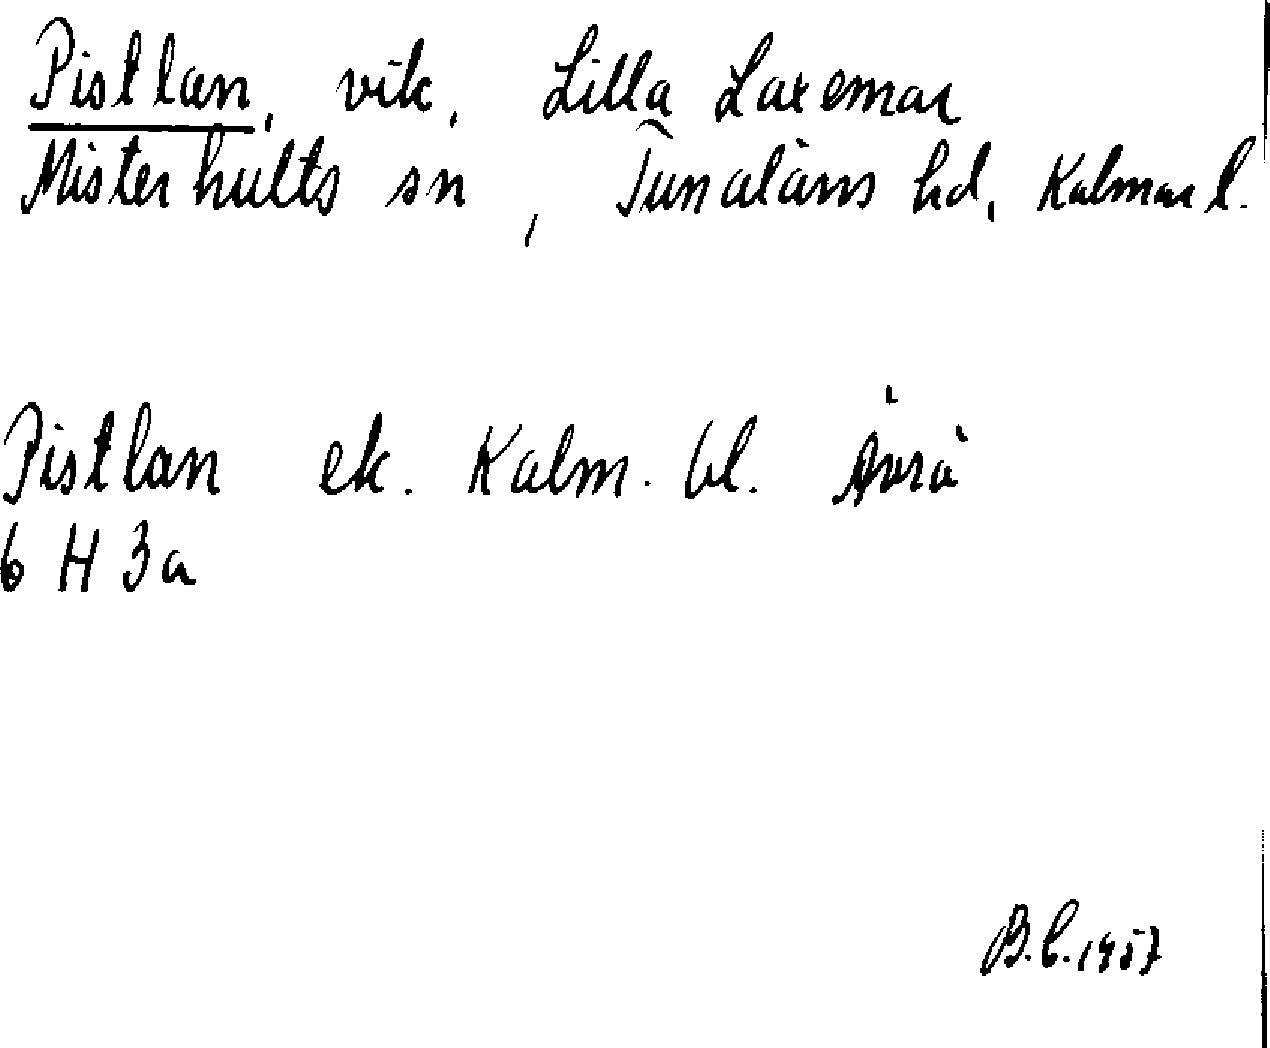 Pistlan, vik, Lilla Laxemar
Misterhults sn, Tunaläns hd, Kalmar l.
Pistlan ek. Kalm. bl. Ävrö
6 H 3a
B.E. 1957